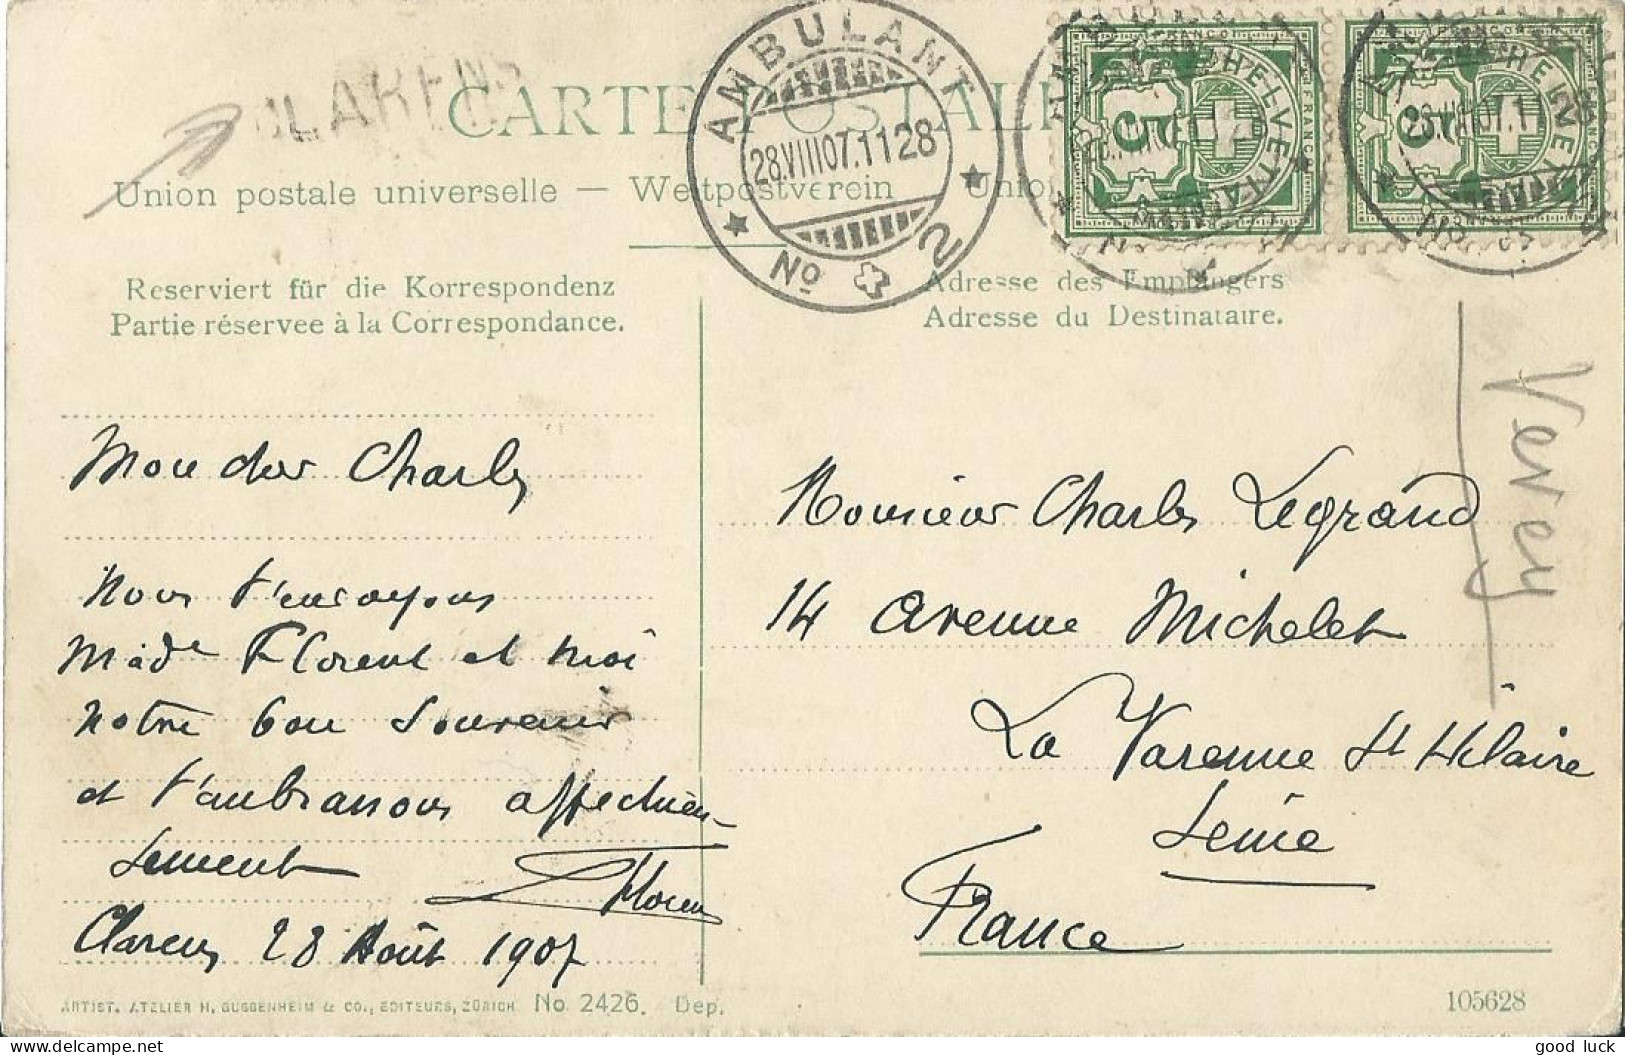 CLARENS
CARTE POSTALE
Union postale universelle — Weltpostverein
AMBULANT
28.VIII07.1128
No 2
FRANCO
HELVETIA
5
FRANCO
HELVETIA
5
Reserviert für die Korrespondenz
Partie réservee à la Correspondance.
Adresse des Empfängers
Adresse du Destinataire.
Vevey
Mon cher Charles
Nous t'envoyons
Made Florent et moi
notre bon souvenir
et t'embrassons affectueu-
sement
Florent
Clarens 28 Août 1907
Monsieur Charles Legrand
14 avenue Michelet
La Varenne St Hilaire
Seine
France
ARTIST. ATELIER H. GUGGENHEIM & CO., EDITEURS, ZÜRICH No. 2426. Dep.
105628
good luck